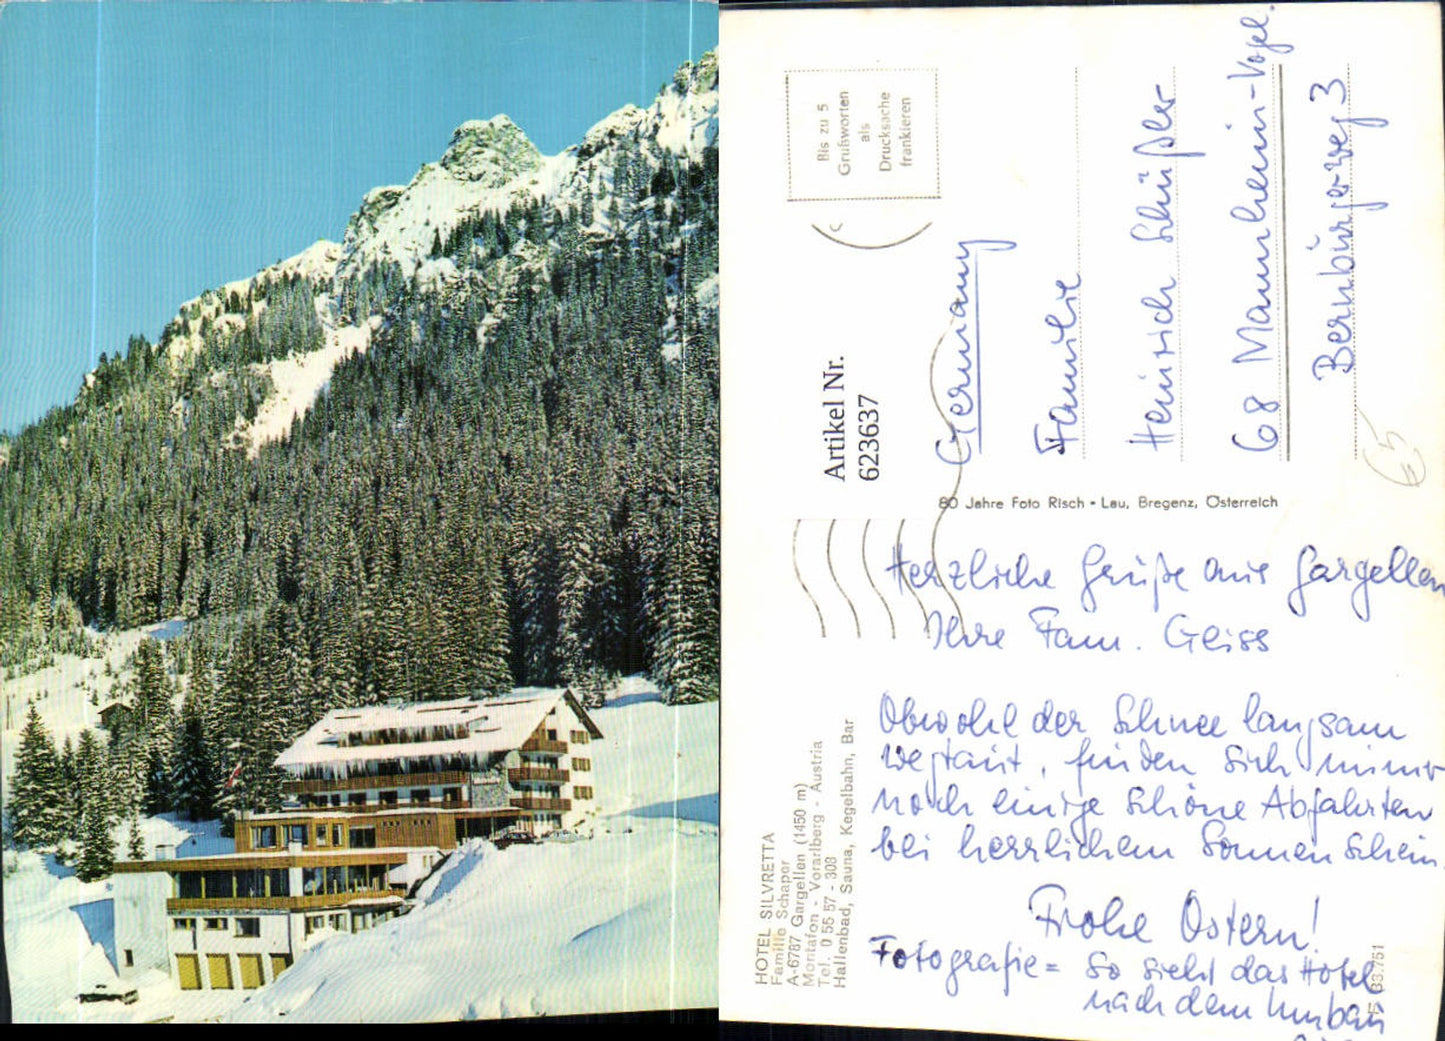 Bis zu 5
Grußworten
als
Drucksache
frankieren
Artikel Nr.
623637
Germany
Familie
Heinrich Schüßler
68 Mannheim-Vogel.
Bernburgerweg 3
€5
80 Jahre Foto Risch • Lau, Bregenz, Österreich
Herzliche Grüße aus Gargellen
Ihre Fam. Geiss
Obwohl der Schnee langsam
wegtaut, finden sich immer
noch einige schöne Abfahrten
bei herrlichem Sonnenschein.
Frohe Ostern!
Fotografie = So sieht das Hotel
nach dem Umbau
HOTEL SILVRETTA
Familie Schaper
A-6787 Gargellen (1450 m)
Montafon - Vorarlberg - Austria
Tel. 0 55 57 - 308
Hallenbad, Sauna, Kegelbahn, Bar